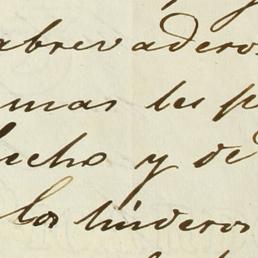 abrevaderos
mas les p
lucho y de
los linderos